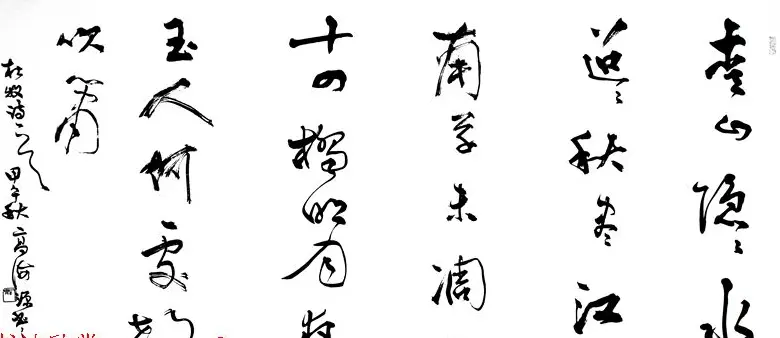 青山隐〻水
迢〻秋尽江
南草未凋
十四橋明月夜
玉人何处教
吹箫
杜牧诗一首 甲午秋 高海源书